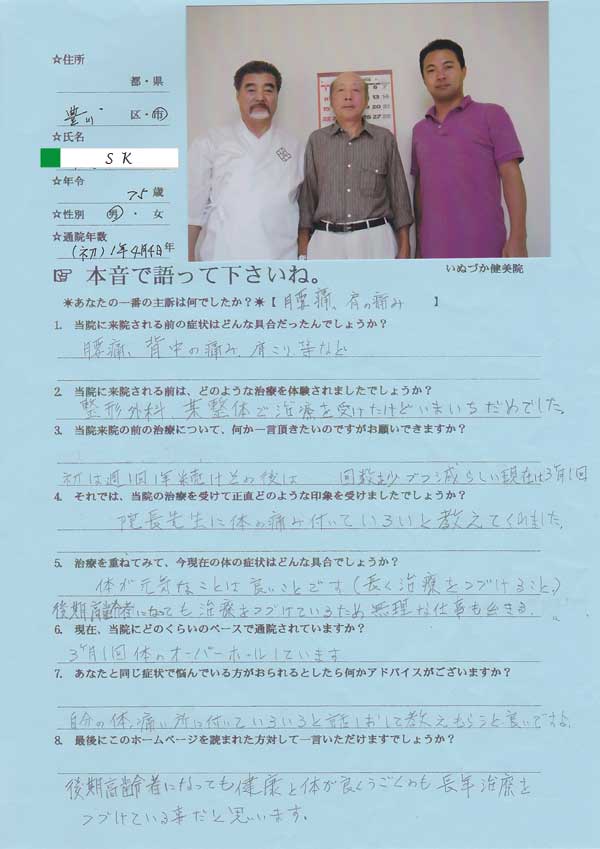 ☆住所
都・県
豊川 区・市
☆氏名
SK
☆年令
75歳
☆性別 男・女
☆通院年数
(初)1年4月4日年
いぬづか健美院
☞ 本音で語って下さいね。
＊あなたの一番の主訴は何でしたか？＊【 腰痛、肩の痛み 】
1. 当院に来院される前の症状はどんな具合だったんでしょうか？
腰痛、背中の痛み、肩こり等など
2. 当院に来院される前は、どのような治療を体験されましたでしょうか？
整形外科、某整体で治療を受けたけどいまいちだめでした。
3. 当院来院の前の治療について、何か一言頂きたいのですがお願いできますか？
初は週1回1年続けその後は 回数も少づつ減らしい現在は3ヶ月1回
4. それでは、当院の治療を受けて正直どのような印象を受けましたでしょうか？
院長先生に体の痛み付いていろいと教えてくれました。
5. 治療を重ねてみて、今現在の体の症状はどんな具合でしょうか？
体が元気なことは良いことです(長く治療をつづけること)
後期高齢者になっても治療をつづけているため無理な仕事も出きる。
6. 現在、当院にどのくらいのペースで通院されていますか？
3ヶ月1回体のオーバーホールしています
7. あなたと同じ症状で悩んでいる方がおられるとしたら何かアドバイスがございますか？
自分の体、痛い所に付いていろいろと話しおして教えもらうと良いですよ
8. 最後にこのホームページを読まれた方対して一言いただけますでしょうか？
後期高齢者になっても健康と体が良くうごくのも長年治療を
つづけている事だと思います。